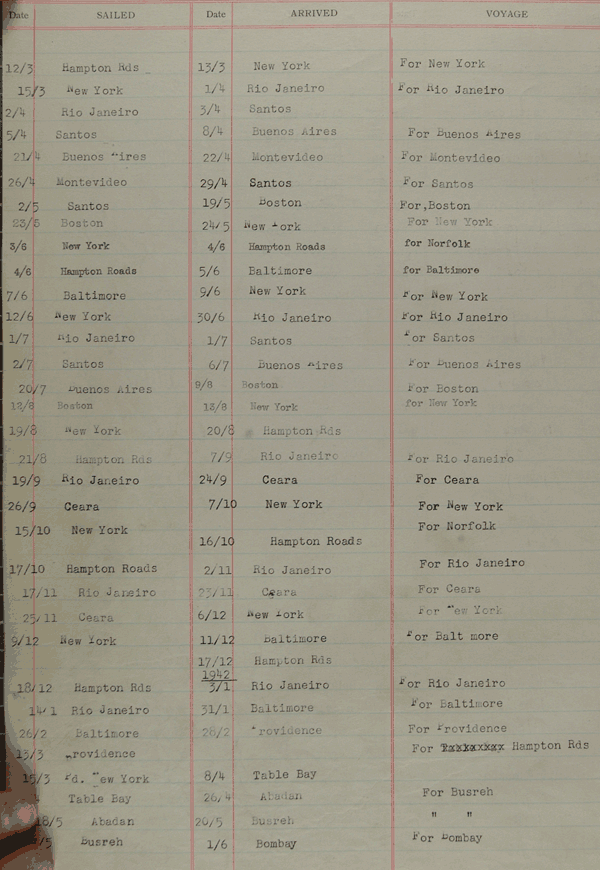 Date SAILED Date ARRIVED VOYAGE
12/3 Hampton Rds 13/3 New York For New York
15/3 New York 1/4 Rio Janeiro For Rio Janeiro
2/4 Rio Janeiro 3/4 Santos
5/4 Santos 8/4 Buenos Aires For Buenos Aires
21/4 Buenos Aires 22/4 Montevideo For Montevideo
26/4 Montevideo 29/4 Santos For Santos
2/5 Santos 19/5 Boston For,Boston
23/5 Boston 24/5 New York For New York
3/6 New York 4/6 Hampton Roads for Norfolk
4/6 Hampton Roads 5/6 Baltimore for Baltimore
7/6 Baltimore 9/6 New York For New York
12/6 New York 30/6 Rio Janeiro For Rio Janeiro
1/7 Rio Janeiro 1/7 Santos For Santos
2/7 Santos 6/7 Buenos Aires For Buenos Aires
20/7 Buenos Aires 9/8 Boston For Boston
12/8 Boston 13/8 New York for New York
19/8 New York 20/8 Hampton Rds
21/8 Hampton Rds 7/9 Rio Janeiro For Rio Janeiro
19/9 Rio Janeiro 24/9 Ceara For Ceara
26/9 Ceara 7/10 New York For New York
15/10 New York 16/10 Hampton Roads For Norfolk
17/10 Hampton Roads 2/11 Rio Janeiro For Rio Janeiro
17/11 Rio Janeiro 23/11 Ceara For Ceara
25/11 Ceara 6/12 New York For New York
9/12 New York 11/12 Baltimore For Balt more
17/12 Hampton Rds
1942
18/12 Hampton Rds 3/1 Rio Janeiro For Rio Janeiro
14/1 Rio Janeiro 31/1 Baltimore For Baltimore
26/2 Baltimore 28/2 Providence For Providence
13/3 Providence For Hampton Rds
15/3 Fd. New York 8/4 Table Bay
Table Bay 26/4 Abadan For Busreh
18/5 Abadan 20/5 Busreh " "
/5 Busreh 1/6 Bombay For Bombay